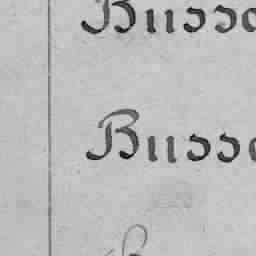 Busso
Busso